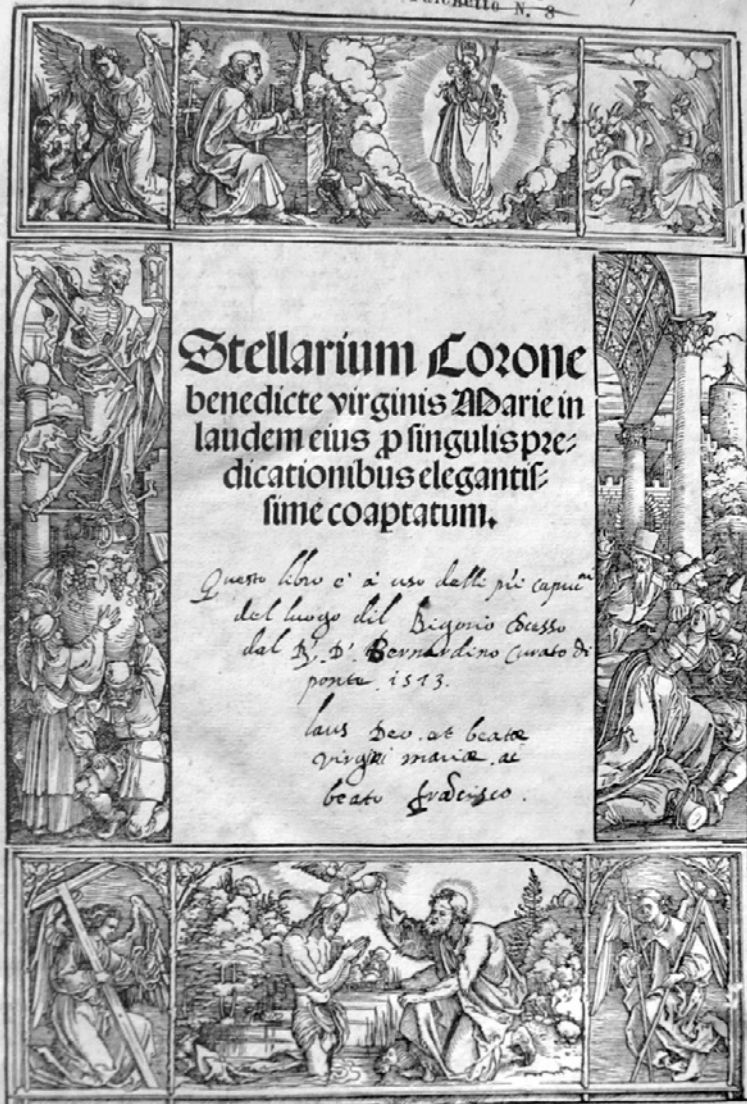 N. 8
Stellarium Corone
benedicte virginis Marie in
laudem eius ꝓ singulis pre⸗
dicationibus elegantis⸗
sime coaptatum.
Questo libro e' a uso delli pri capucni
del luogo dil Bigorio
dal R. D. Bernardino Curato di
ponte. 1573.
laus Deo. et beatæ
virgini mariæ. ac
beato frācisco.